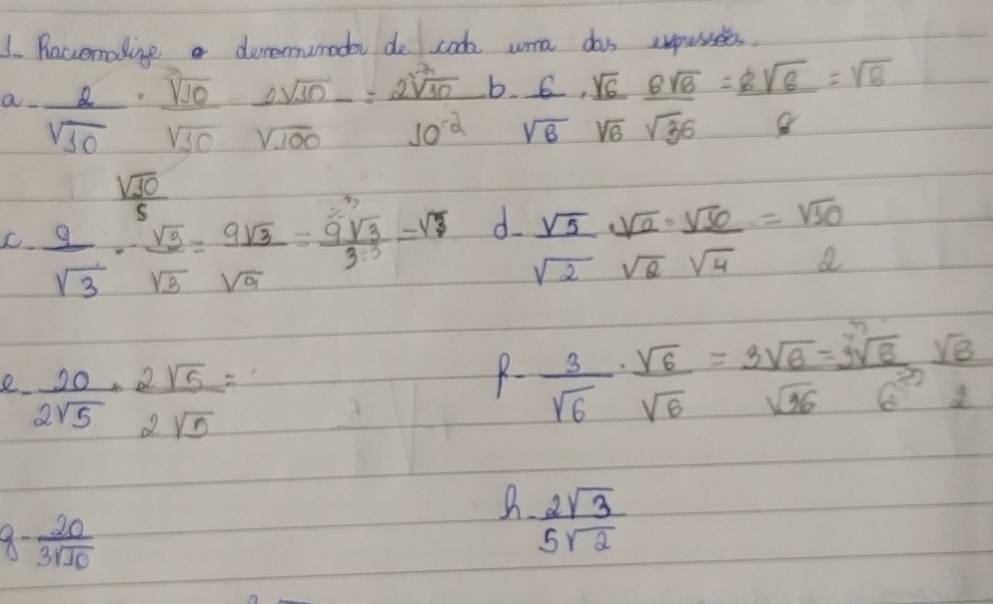 1- Racionalize o denominador de cada uma das expressões.
a- 2/√10 · √10/√10 2√10/√100 = 2√10/10 b- 6/√6 · √6/√6 6√6/√36 = 6√6/6 = √6
√10/5
c- 9/√3 · √3/√3 = 9√3/√9 = 9√3/3 = √3 d- √5/√2 · √2/√2 = √10/√4 = √10/2
e- 20/2√5 · 2√5/2√5 = f- 3/√6 · √6/√6 = 3√6/√36 = 3√6/6 √6/2
g- 20/3√10 h- 2√3/5√2